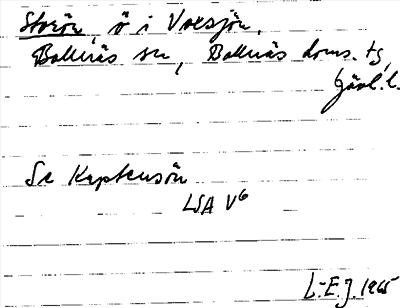 Storön, ö i Voxsjön,
Bollnäs sn, Bollnäs doms. tg,
Gävl. l.
Se Kaptensön
LSA V6
L-E.J. 1965